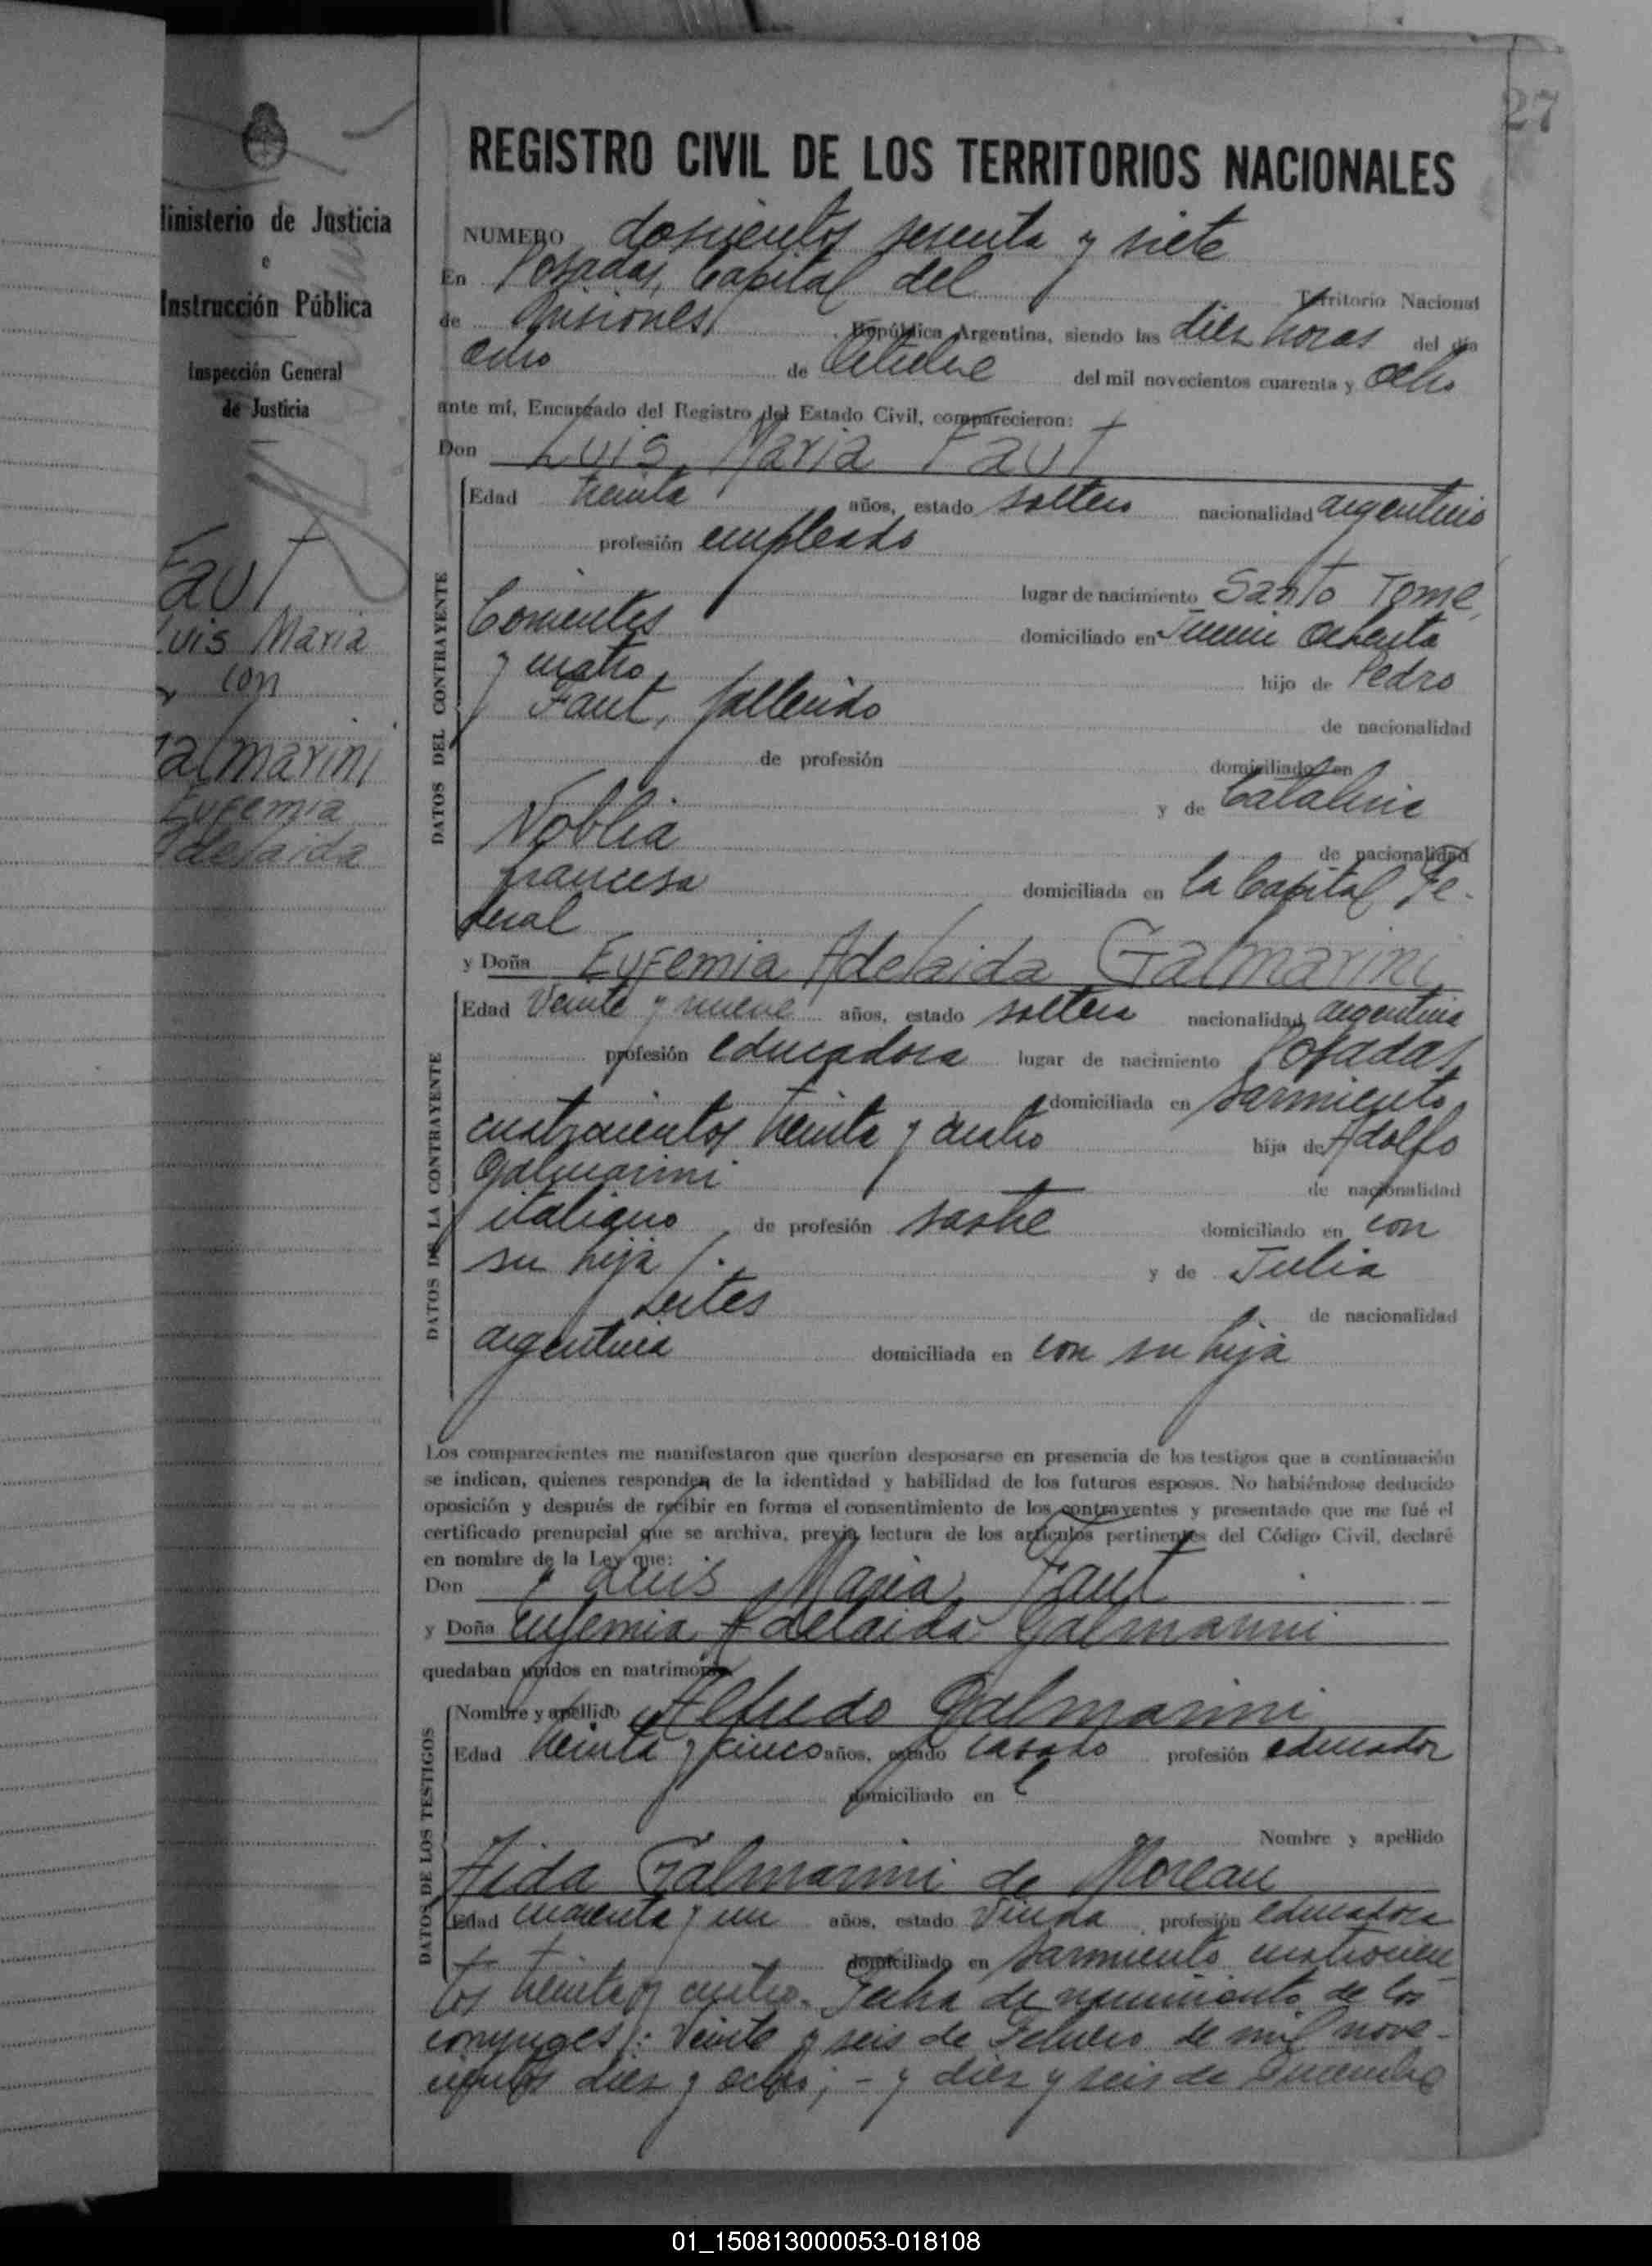 27
Ministerio de Justicia
e
Instrucción Pública
Inspección General
de Justicia
Faut
Luis Maria
con
Galmarini
Eufemia
Adelaida
REGISTRO CIVIL DE LOS TERRITORIOS NACIONALES
NUMERO doscientos sesenta y siete
En Posadas, Capital del Territorio Nacional
de Misiones, República Argentina, siendo las diez horas del día
ocho de Octubre del mil novecientos cuarenta y ocho
ante mí, Encargado del Registro del Estado Civil, comparecieron:
Don Luis Maria Faut
DATOS DEL CONTRAYENTE
Edad treinta años, estado soltero nacionalidad argentino
profesión empleado
lugar de nacimiento Santo Tome,
Corrientes domiciliado en Junin ochenta
y cuatro, hijo de Pedro
Faut, fallecido de nacionalidad
de profesión domiciliado en
y de Catalina
Noblia de nacionalidad
francesa domiciliada en la Capital Fe-
deral
y Doña Eufemia Adelaida Galmarini
DATOS DE LA CONTRAYENTE
Edad veinte y nueve años, estado soltera nacionalidad argentina
profesión educadora lugar de nacimiento Posadas,
domiciliada en Sarmiento
cuatrocientos treinta y cuatro hija de Adolfo
Galmarini de nacionalidad
italiano de profesión sastre domiciliado en con
su hija y de Julia
Leites de nacionalidad
argentina domiciliada en con su hija
Los comparecientes me manifestaron que querían desposarse en presencia de los testigos que a continuación
se indican, quienes responden de la identidad y habilidad de los futuros esposos. No habiéndose deducido
oposición y después de recibir en forma el consentimiento de los contrayentes y presentado que me fué el
certificado prenupcial que se archiva, previa lectura de los artículos pertinentes del Código Civil, declaré
en nombre de la Ley que:
Don Luis Maria Faut
y Doña Eufemia Adelaida Galmarini
quedaban unidos en matrimonio.
DATOS DE LOS TESTIGOS
Nombre y apellido Alfredo Galmarini
Edad treinta y cinco años, estado casado profesión educador
domiciliado en
Nombre y apellido
Aida Galmarini de Moreau
Edad cuarenta y un años, estado viuda profesión educadora
domiciliado en Sarmiento cuatrocien
tos treinta y cuatro. Fecha de nacimiento de los
conyuges: Veinte y seis de Febrero de mil nove-
cientos diez y ocho; - y diez y seis de Diciembre
01_150813000053-018108